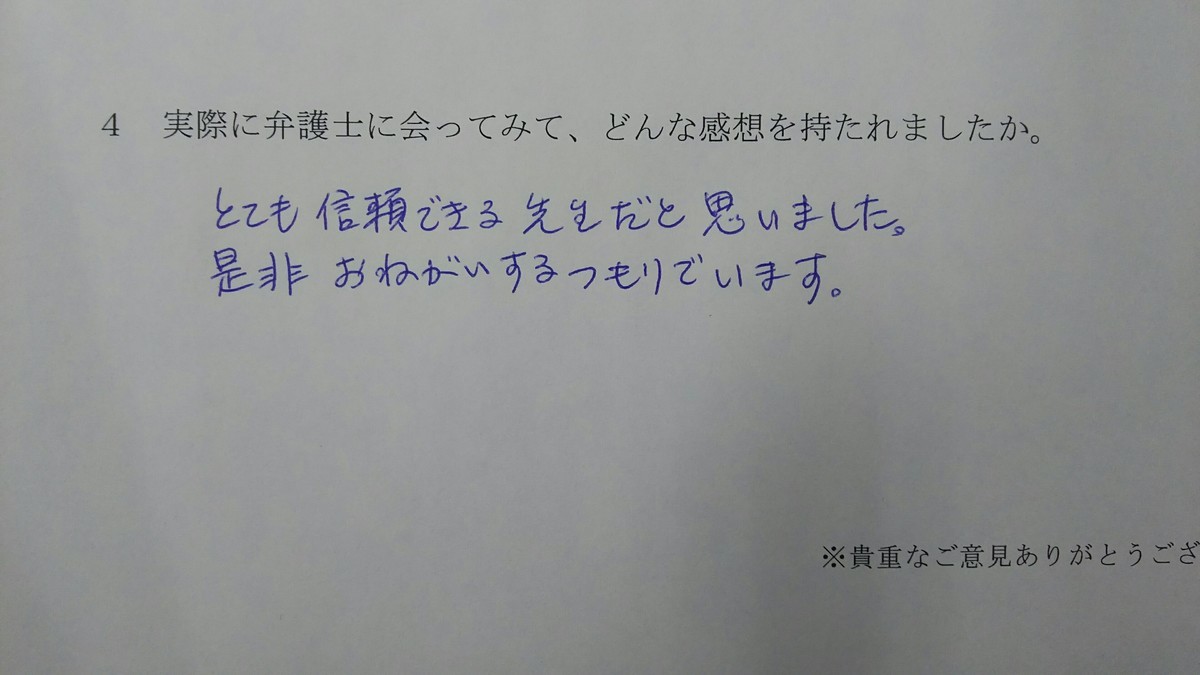 4 実際に弁護士に会ってみて、どんな感想を持たれましたか。
とても信頼できる先生だと思いました。
是非おねがいするつもりでいます。
※貴重なご意見ありがとうござ